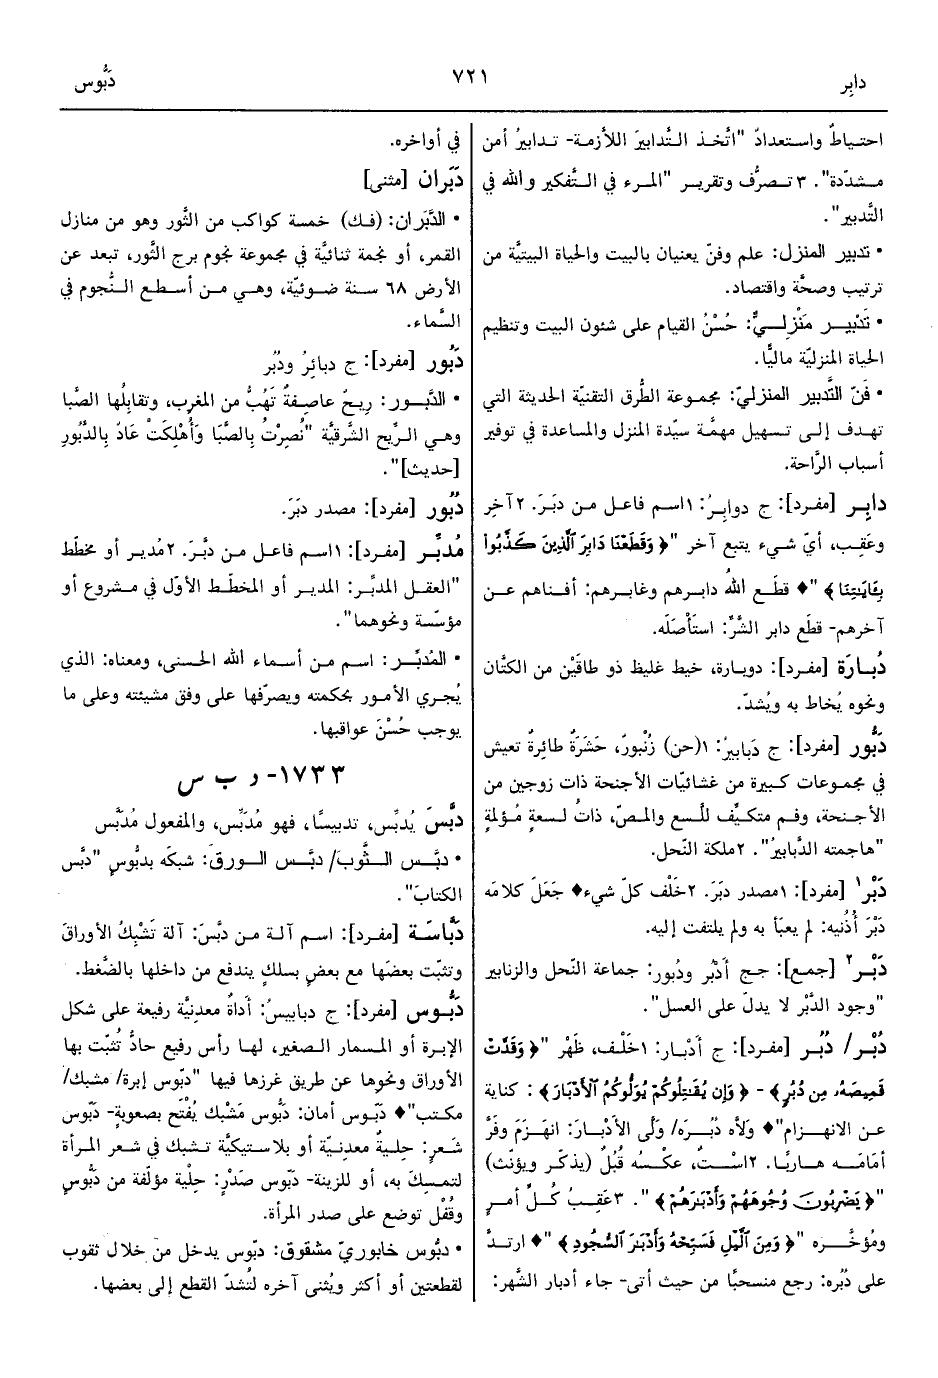 دابِر
٧٢١
دَبُّوس
احتياطٌ واستعدادٌ "اتَّخذ التَّدابيرَ اللاَّزمة- تدابيرُ أمن
مشدّدة". ٣ تصرُّف وتقرير "المرء في التَّفكير والله في
التَّدبير".
• تدبير المنزل: علم وفنّ يعنيان بالبيت والحياة البيتيَّة من
ترتيب وصحَّة واقتصاد.
• تَدْبير مَنْزليٌّ: حُسْنُ القيام على شئون البيت وتنظيم
الحياة المنزليّة ماليًّا.
• فَنّ التَّدبير المنزليّ: مجموعة الطُّرق التقنيّة الحديثة التي
تهدف إلى تسهيل مهمَّة سيِّدة المنزل والمساعدة في توفير
أسباب الرَّاحة.
دابِر [مفرد]: ج دوابِرُ: ١اسم فاعل من دبَرَ. ٢آخِر
وعَقِب، أيّ شيء يتبع آخر "﴿ وَقَطَعْنَا دَابِرَ ٱلَّذِينَ كَذَّبُواْ
بِـَٔايَٰتِنَا ﴾ "♦ قطَع اللهُ دابرهم وغابرهم: أفناهم عن
آخرهم- قطَع دابر الشَّرِّ: استَأْصَلَه.
دُبارَة [مفرد]: دوبارة، خيط غليظ ذو طاقَيْن من الكتَّان
ونحوه يُخاط به ويُشدّ.
دَبُّور [مفرد]: ج دَبابيرُ: ١(حن) زُنْبورٌ، حَشَرَةٌ طائِرةٌ تعيش
في مجموعات كبيرة من غشائيَّات الأجنحة ذات زوجين من
الأجنحة، وفم متكيِّف للَّسع والمصّ، ذاتُ لسعةٍ مُؤلمةٍ
"هاجمته الدَّبابيرُ". ٢ملكة النَّحل.
دَبْر١ [مفرد]: ١مصدر دبَرَ. ٢خَلْف كلّ شيء♦ جَعَلَ كلامَه
دَبْرَ أُذُنيه: لم يعبَأ به ولم يلتفت إليه.
دَبْر٢ [جمع]: جج أَدْبُر ودُبور: جماعة النَّحل والزنابير
"وجود الدَّبْر لا يدلّ على العسل".
دُبْر/ دُبُر [مفرد]: ج أدْبار: ١خَلْف، ظَهْر "﴿ وَقَدَّتْ
قَمِيصَهُۥ مِن دُبُرٍ ﴾ - ﴿ وَإِن يُقَٰتِلُوكُمْ يُوَلُّوكُمُ ٱلْأَدْبَارَ ﴾ : كناية
عن الانهزام"♦ ولاَّه دُبُرَه/ ولَّى الأدْبارَ: انهزَمَ وفَرَّ
أمَامَه هاربًا. ٢اسْتٌ، عكْسُه قُبُلٌ (يذكّر ويؤنّث)
"﴿ يَضْرِبُونَ وُجُوهَهُمْ وَأَدْبَٰرَهُمْ ﴾ ". ٣عَقِبُ كُلِّ أمرٍ
ومُؤخَّره "﴿ وَمِنَ ٱلَّيْلِ فَسَبِّحْهُ وَأَدْبَٰرَ ٱلسُّجُودِ ﴾ "♦ ارتدَّ
على دُبُره: رجع منسحبًا من حيث أتى- جاء أدبار الشَّهر:
في أواخره.
دَبَران [مثنى]
• الدَّبَران: (فك) خمسة كواكب من الثَّور وهو من منازل
القمر، أو نجمة ثنائيَّة في مجموعة نجوم برج الثَّور، تبعد عن
الأرض ٦٨ سنة ضوئيّة، وهي من أسطع النُّجوم في
السَّماء.
دَبُور [مفرد]: ج دبائرُ ودُبُر
• الدَّبُور: ريحٌ عاصِفةٌ تَهُبُّ من المغربِ، وتقابِلُها الصَّبا
وهي الرِّيح الشرقيَّة "نُصِرْتُ بِالصَّبَا وَأُهْلِكَتْ عَادٌ بِالدَّبُورِ
[حديث]".
دُبُور [مفرد]: مصدر دبَرَ.
مُدبِّر [مفرد]: ١اسم فاعل من دبَّرَ. ٢مُدير أو مخطِّط
"العقل المدبِّر: المدير أو المخطِّط الأوّل في مشروع أو
مؤسَّسة ونحوهما".
• المُدبِّر: اسم من أسماء الله الحسنى، ومعناه: الذي
يُجري الأمور بحكمته ويصرِّفها على وفق مشيئته وعلى ما
يوجب حُسْنَ عواقبها.
١٧٣٣- د ب س
دبَّسَ يُدبِّس، تدبيسًا، فهو مُدَبِّس، والمفعول مُدَبَّس
• دبَّس الثَّوبَ/ دبَّس الورقَ: شبكَه بدبُّوسٍ "دبَّس
الكتابَ".
دَبَّاسَة [مفرد]: اسم آلة من دبَّسَ: آلة تَشْبِكُ الأوراقَ
وتثبِّت بعضَها مع بعضٍ بسلكٍ يندفع من داخلها بالضَّغط.
دَبُّوس [مفرد]: ج دبابيسُ: أداةٌ معدنيَّة رفيعة على شكل
الإبرة أو المسمار الصغير، لها رأس رفيع حادٌّ تُثبَّت بها
الأوراق ونحوها عن طريق غرزها فيها "دبّوس إبرة/ مشبك/
مكتب"♦ دبّوس أمان: دَبُّوس مَشْبَك يُفْتَح بصعوبةٍ- دَبّوس
شَعرٍ: حِليةٌ معدنيّة أو بلاستيكيَّة تشبك في شعر المرأة
لتمسك به، أو للزينة- دَبّوس صَدْرٍ: حِلْية مؤلَّفة من دَبُّوسٍ
وقُفْل توضع على صدر المرأة.
• دبُّوس خابوريّ مشقوق: دبُّوس يدخل من خلال ثقوب
لقطعتين أو أكثر ويُثنى آخره لتُشدّ القطع إلى بعضها.